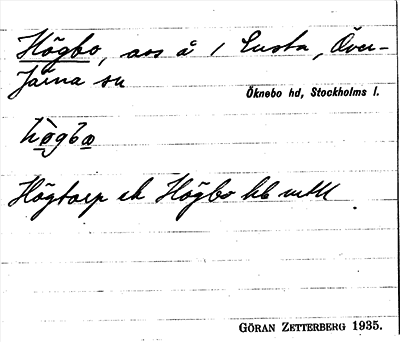 Högbo, avs å 1 Ensta, Över-
Järna sn
Öknebo hd, Stockholms l.
hògbo
Högtorp el. Högbo hb mtU
GÖRAN ZETTERBERG 1935.